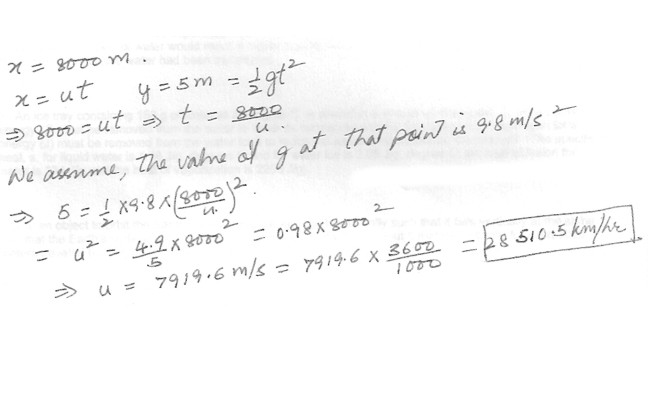 x = 8000 m.
x = ut   y = 5m = 1/2 gt²
⇒ 8000 = ut ⇒ t = 8000/u.
We assume, the value of g at that point is 9.8 m/s²
⇒ 5 = 1/2 × 9.8 × (8000/u.)².
= u² = 4.9/5 × 8000² = 0.98 × 8000²
⇒ u = 7919.6 m/s = 7919.6 × 3600/1000 = 28510.5 km/hr